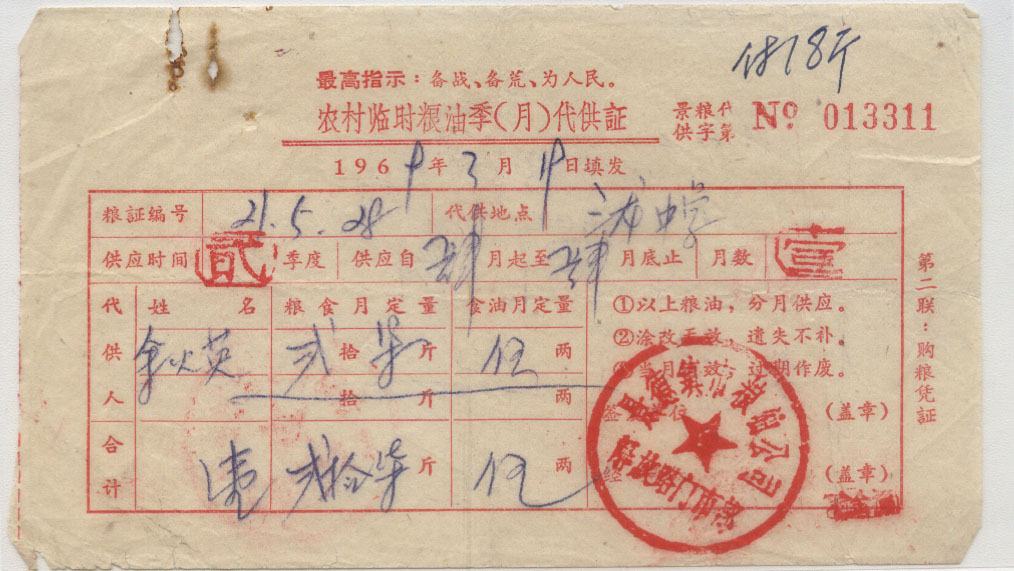 付18斤
最高指示：备战、备荒、为人民。
农村临时粮油季(月)代供証
景粮代
供字第 № 013311
1969年3月19日填发
粮証编号 21.5.28 代供地点 中学
供应时间 貳 季度 供应自 肆 月起至 肆 月底止 月数 壹
代供人 姓名 粮食月定量 食油月定量
英 弍拾柒斤 伍两
拾 斤 两
合计 弍拾柒斤 伍两
①以上粮油，分月供应。
②涂改无效，遗失不补。
③当月有效，过期作废。
签 位 (盖章)
经 (盖章)
景德镇市粮油公司
解放路门市部
第二联：购粮凭証